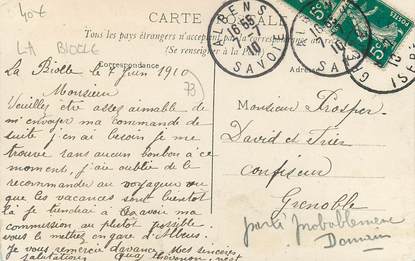 40f
LA BIOLLE
CARTE POSTALE
Tous les pays étrangers n'acceptent pas la
(Se renseigner à la
Correspondance
Adresse
ALBENS
16 55
10
SAVOIE
16 55
10
5c
73
La Biolle le 7 Juin 1910
Monsieur
Veuillez être assez aimable de
m'envoyer ma commande de
suite j'en ai besoin je me
trouve sans aucun bonbon à ce
moment, j'ai oublié de le
recommander au voyageur vu
que les vacances sont bientôt
là je tiendrai à avoir ma
commission au plutôt possible
vous la mettez en gare d'Albens
Je vous remercie d'avance Mes sincères
salutations
Monsieur Prosper
David et Trier
confiseur
Grenoble
parti probablement
Demain